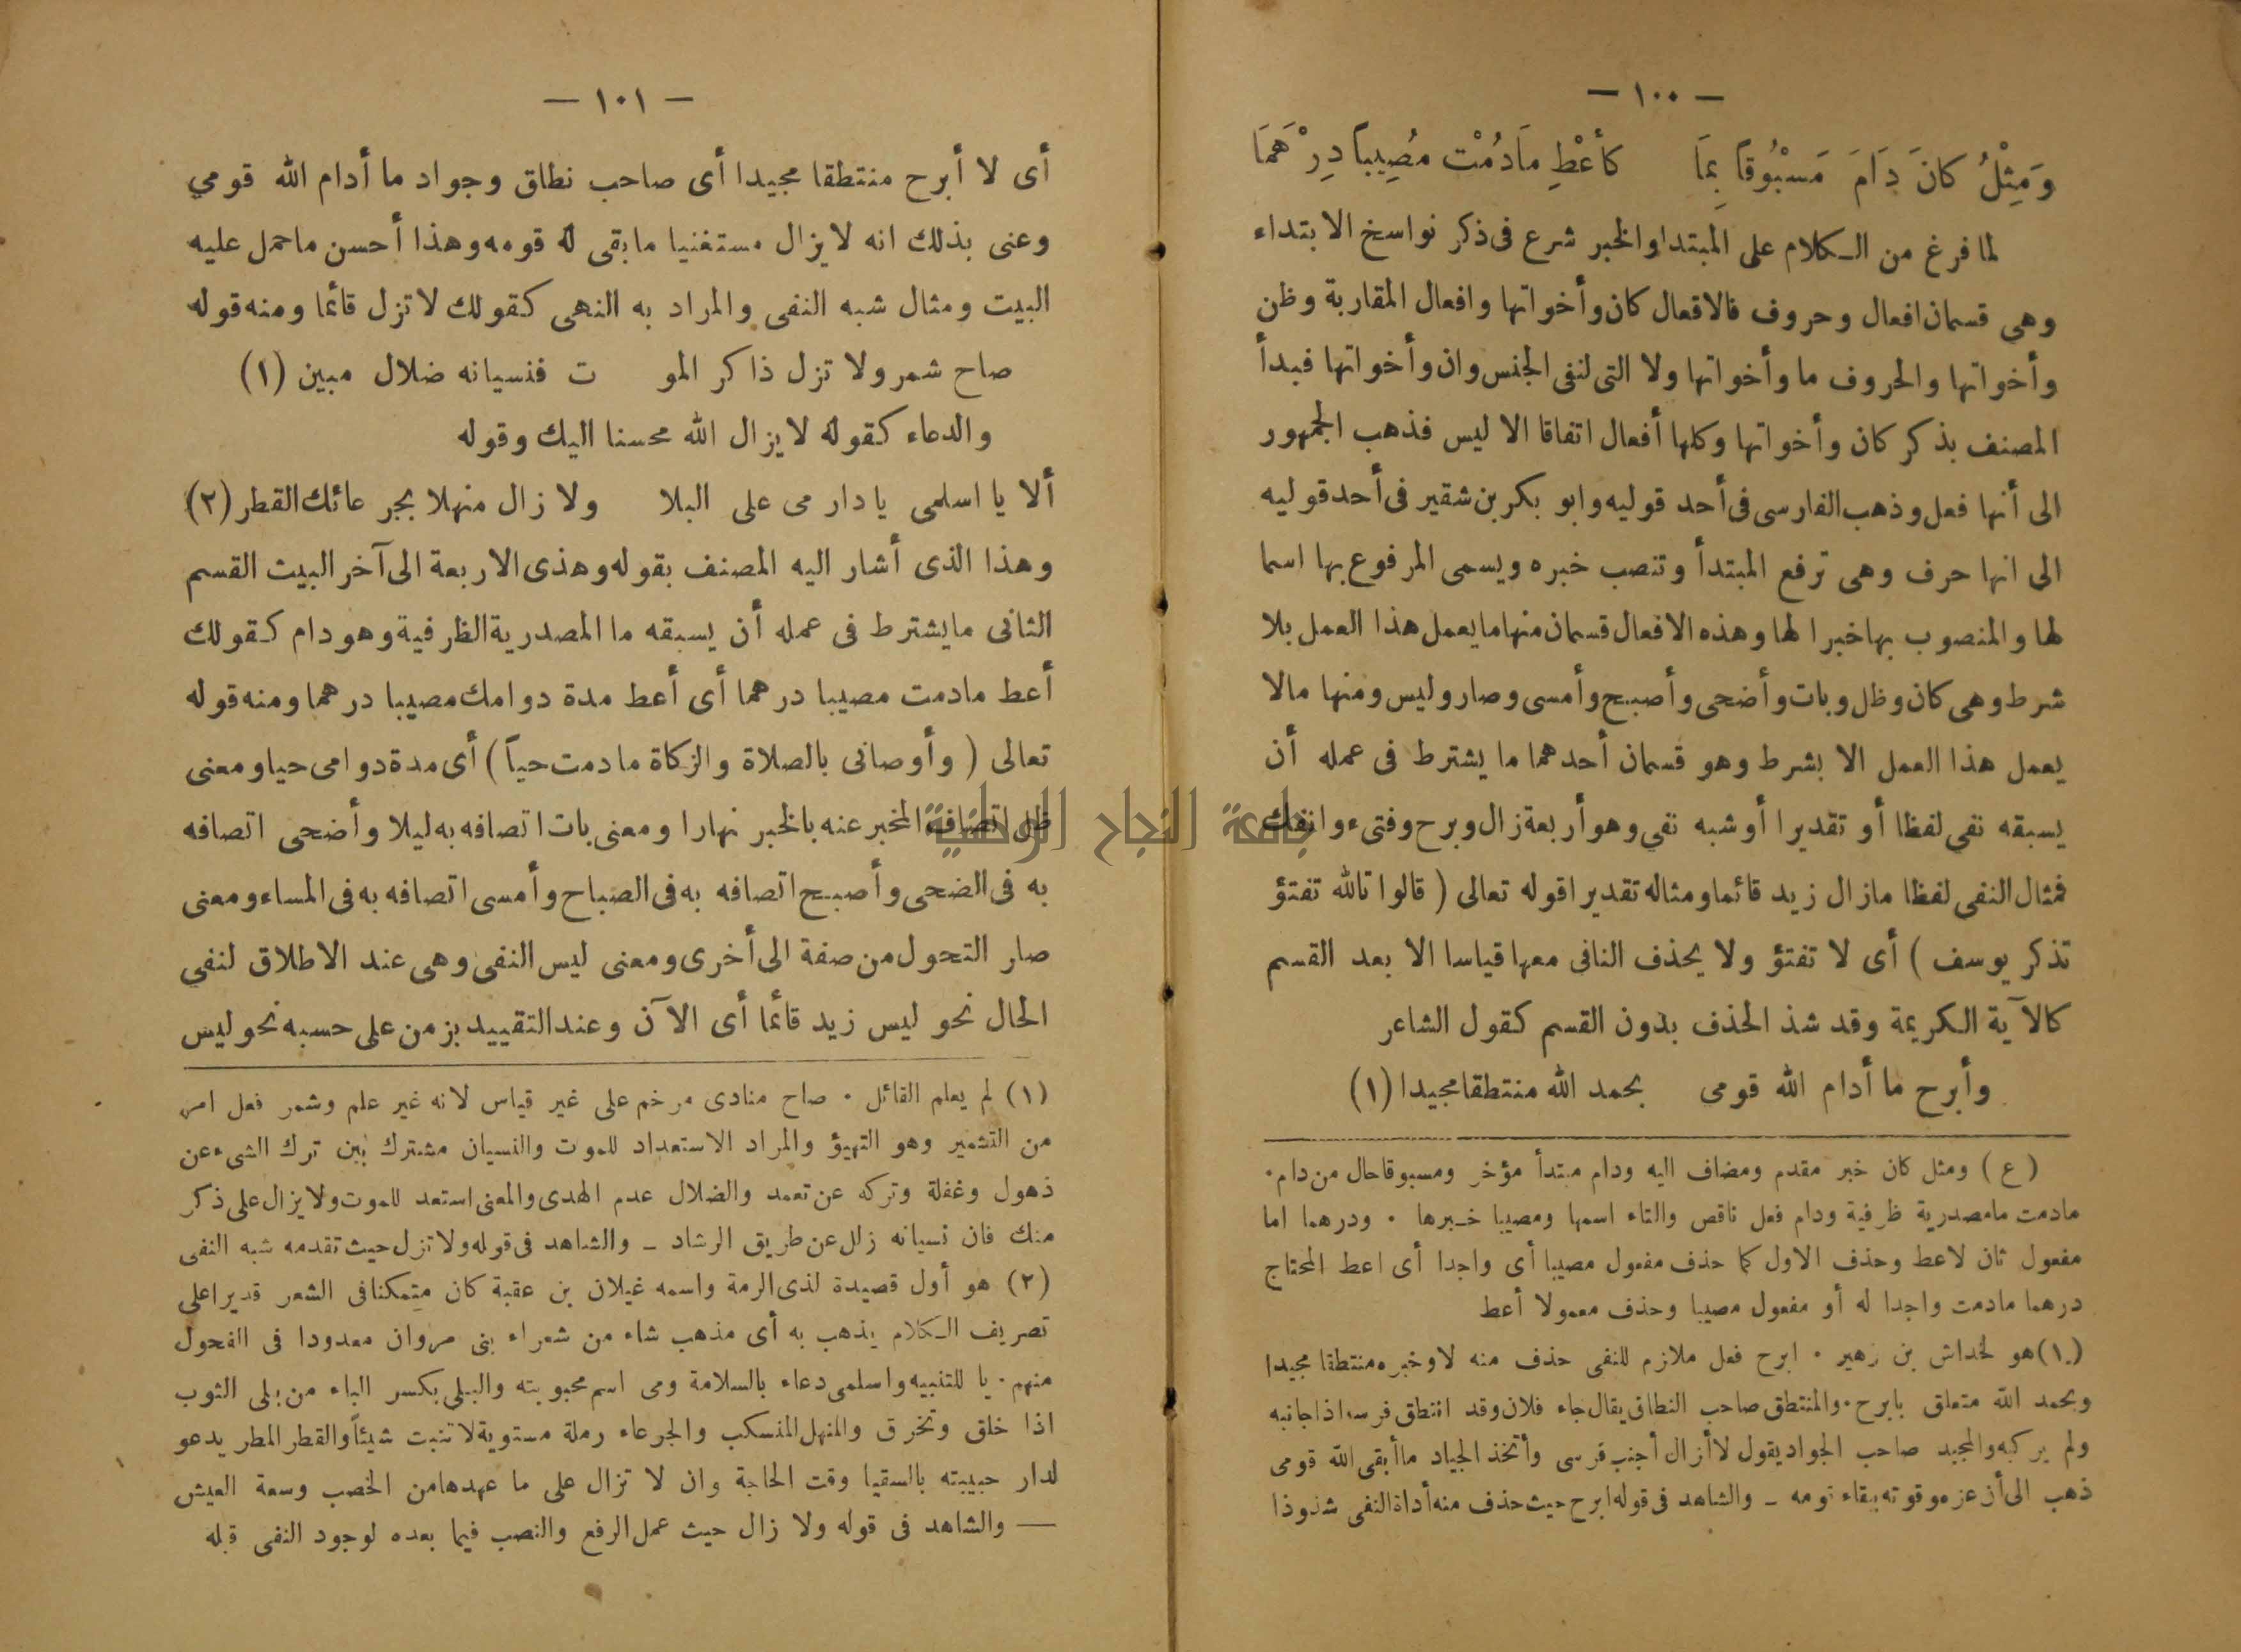 — ١٠٠ —
وَمِثْلُ كانَ دَامَ مَسْبُوقاً بِمَا كأعْطِ مَادُمْت مُصِيباً دِرْهَمَا
لما فرغ من الـكلام على المبتدا والخبر شرع فى ذكر نواسخ الابتداء
وهى قسمان افعال وحروف فالافعال كان وأخواتها وافعال المقاربة وظن
وأخواتها والحروف ما وأخواتها ولا التى لنفى الجنس وان وأخواتها فبدأ
المصنف بذكر كان وأخواتها وكلها أفعال اتفاقا الا ليس فذهب الجمهور
الى أنها فعل وذهب الفارسى فى أحد قوليه وابو بكر بن شقير فى أحد قوليه
الى انها حرف وهى ترفع المبتدأ وتنصب خبره ويسمى المرفوع بها اسما
لها والمنصوب بها خبرا لها وهذه الافعال قسمان منها ما يعمل هذا العمل بلا
شرط وهى كان وظل وبات وأضحى وأصبح وأمسى وصار وليس ومنها مالا
يعمل هذا العمل الا بشرط وهو قسمان أحدهما ما يشترط فى عمله أن
يسبقه نفى لفظا أو تقديرا أو شبه نفى وهو أربعة زال وبرح وفتىء وانفك
فمثال النفى لفظا مازال زيد قائما ومثاله تقديرا قوله تعالى ( قالوا تالله تفتؤ
تذكر يوسف ) أى لا تفتؤ ولا يحذف النافى معها قياسا الا بعد القسم
كالآية الـكريمة وقد شذ الحذف بدون القسم كقول الشاعر
وأبرح ما أدام الله قومى بحمد الله منتطقا مجيدا (١)
(ع) ومثل كان خبر مقدم ومضاف اليه ودام مبتدأ مؤخر ومسبوقا حال من دام ·
مادمت مامصدرية ظرفية ودام فعل ناقص والتاء اسمها ومصيبا خـبرها · ودرهما اما
مفعول ثان لاعط وحذف الاول كما حذف مفعول مصيبا أى واجدا أى اعط المحتاج
درهما مادمت واجدا له أو مفعول مصيبا وحذف معمولا أعط
(١) هو لخداش بن زهير · ابرح فعل ملازم للنفى حذف منه لا وخبره منتطقا مجيدا
وبحمد الله متعلق بابرح · والمنتطق صاحب النطاق يقال جاء فلان وقد انتطق فرسه اذا جانبه
ولم يركبه والمجيد صاحب الجواد يقول لا أزال أجنب فرسى وأتخذ الجياد ما أبقى الله قومى
ذهب الى أن عزه وقوته ببقاء قومه ــ والشاهد فى قوله ابرح حيث حذف منه أداة النفى شذوذا
— ١٠١ —
أى لا أبرح منتطقا مجيدا أى صاحب نطاق وجواد ما أدام الله قومي
وعنى بذلك انه لا يزال مستغنيا ما بقى له قومه وهذا أحسن ما حمل عليه
البيت ومثال شبه النفى والمراد به النهى كقولك لا تزل قائما ومنه قوله
صاح شمر ولا تزل ذاكر المو ت فنسيانه ضلال مبين (١)
والدعاء كقوله لا يزال الله محسنا اليك وقوله
ألا يا اسلمى يا دار مى على البلا ولا زال منهلا بجرعائك القطر (٢)
وهذا الذى أشار اليه المصنف بقوله وهذى الاربعة الى آخر البيت القسم
الثانى ما يشترط فى عمله أن يسبقه ما المصدرية الظرفية وهو دام كقولك
أعط مادمت مصيبا درهما أى أعط مدة دوامك مصيبا درهما ومنه قوله
تعالى ( وأوصانى بالصلاة والزكاة مادمت حياً ) أى مدة دوامى حيا ومعنى
ظل اتصاف المخبر عنه بالخبر نهارا ومعنى بات اتصافه به ليلا وأضحى اتصافه
به فى الضحى وأصبح اتصافه به فى الصباح وأمسى اتصافه به فى المساء ومعنى
صار التحول من صفة الى أخرى ومعنى ليس النفى وهى عند الاطلاق لنفى
الحال نحو ليس زيد قائما أى الآن وعند التقييد بزمن على حسبه نحو ليس
(١) لم يعلم القائل · صاح منادى مرخم على غير قياس لانه غير علم وشمر فعل امر
من التشمير وهو التهيؤ والمراد الاستعداد للموت والنسيان مشترك بين ترك الشىء عن
ذهول وغفلة وتركه عن تعمد والضلال عدم الهدى والمعنى استعد للموت ولا يزال على ذكر
منك فان نسيانه زلل عن طريق الرشاد ــ والشاهد فى قوله ولا تزل حيث تقدمه شبه النفى
(٢) هو أول قصيدة لذى الرمة واسمه غيلان بن عقبة كان متمكنا فى الشعر قديرا على
تصريف الـكلام يذهب به أى مذهب شاء من شعراء بنى مروان معدودا فى الفحول
منهم · يا للتنبيه واسلمى دعاء بالسلامة ومى اسم محبوبته والبلى بكسر الباء من بلى الثوب
اذا خلق وتخرق والمنهل المنسكب والجرعاء رملة مستوية لا تنبت شيئاً والقطر المطر يدعو
لدار حبيبته بالسقيا وقت الحاجة وان لا تزال على ما عهدها من الخصب وسعة العيش
— والشاهد فى قوله ولا زال حيث عمل الرفع والنصب فيما بعده لوجود النفى قبله
جامعة النجاح الوطنية